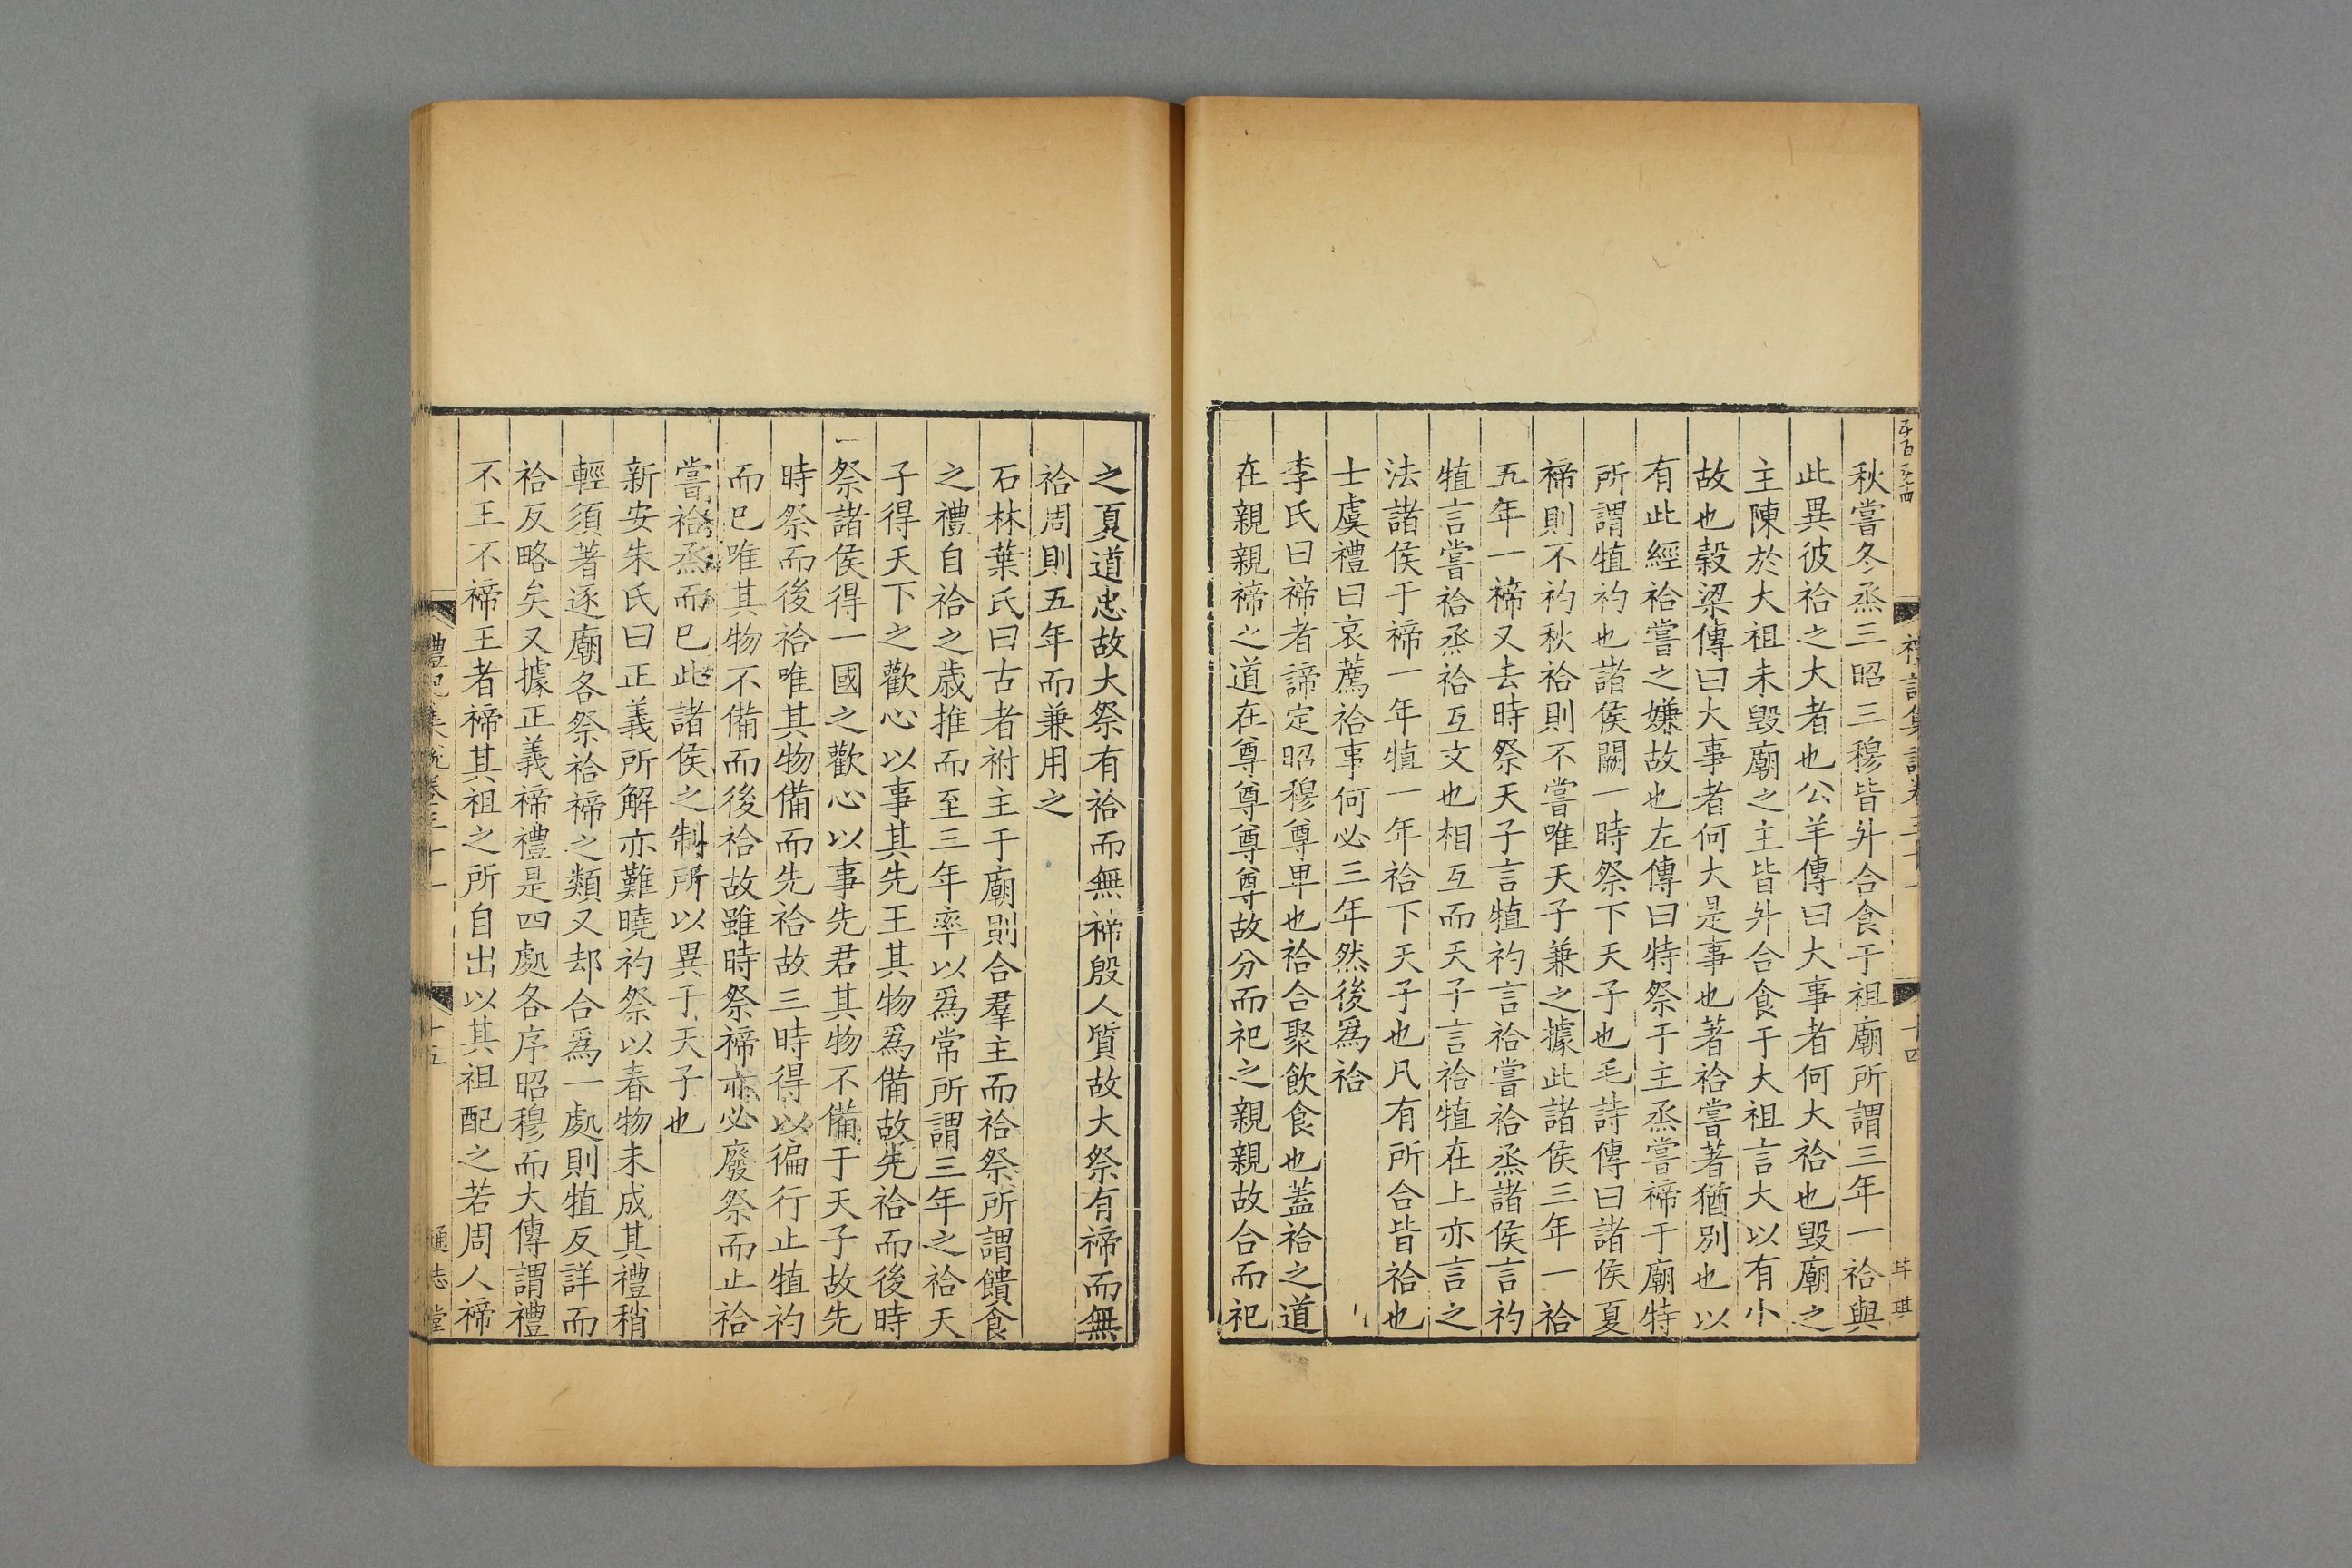 秋嘗冬烝三昭三穆皆升合食于祖廟所謂三年一祫與
此異彼祫之大者也公羊傳曰大事者何大祫也毀廟之
主陳於大祖未毀廟之主皆升合食于大祖言大以有小
故也穀梁傳曰大事者何大是事也著祫嘗著猶別也以
有此經祫嘗之嫌故也左傳曰特祭于主烝嘗禘于廟特
所謂犆礿也諸侯闕一時祭下天子也毛詩傳曰諸侯夏
禘則不礿秋祫則不嘗唯天子兼之據此諸侯三年一祫
五年一禘又去時祭天子言犆礿言祫嘗祫烝諸侯言礿
犆言嘗祫烝祫互文也相互而天子言祫犆在上亦言之
法諸侯于禘一年犆一年祫下天子也凡有所合皆祫也
士虞禮曰哀薦祫事何必三年然後爲祫
李氏曰禘者諦定昭穆尊卑也祫合聚飲食也蓋祫之道
在親親禘之道在尊尊尊尊故分而祀之親親故合而祀
十四
之夏道忠故大祭有祫而無禘殷人質故大祭有禘而無
祫周則五年而兼用之
石林葉氏曰古者祔主于廟則合羣主而祫祭所謂饋食
之禮自祫之歲推而至三年率以爲常所謂三年之祫天
子得天下之歡心以事其先王其物爲備故先祫而後時
祭諸侯得一國之歡心以事先君其物不備于天子故先
時祭而後祫唯其物備而先祫故三時得以徧行止犆礿
而巳唯其物不備而後祫故雖時祭禘亦必廢祭而止祫
嘗祫烝而巳此諸侯之制所以異于天子也
新安朱氏曰正義所解亦難曉礿祭以春物未成其禮稍
輕須著逐廟各祭祫禘之類又却合爲一處則犆反詳而
祫反略矣又據正義禘禮是四處各序昭穆而大傳謂禮
不王不禘王者禘其祖之所自出以其祖配之若周人禘
禮記集說卷三十一
十五
通志堂